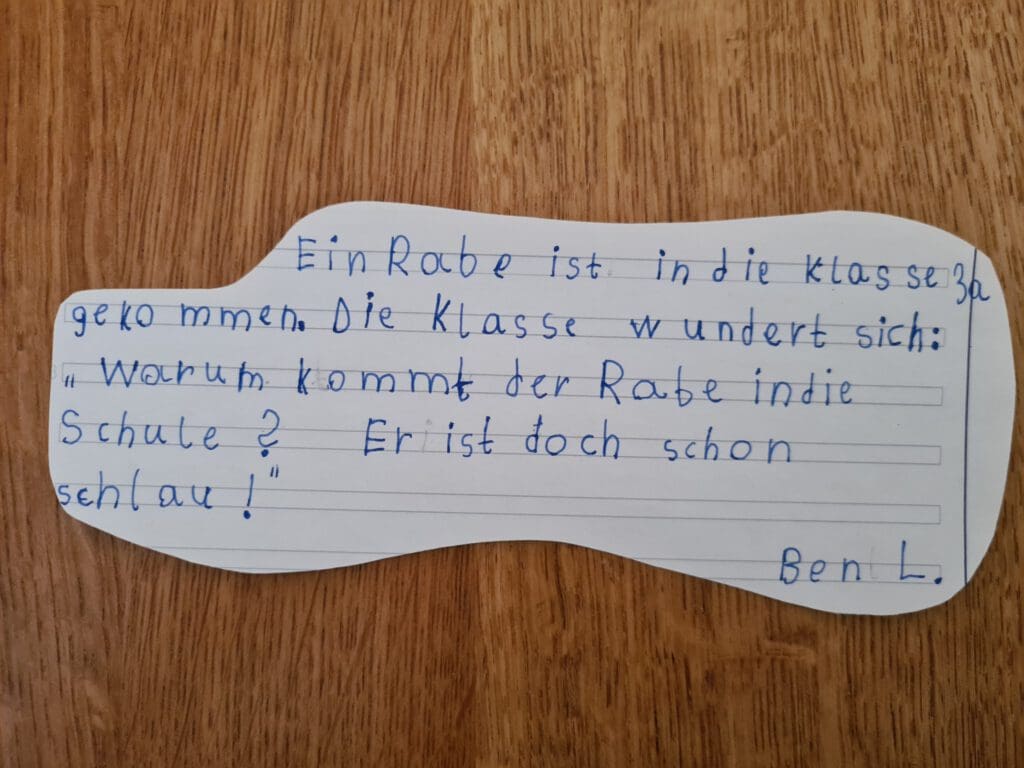 Ein Rabe ist in die Klasse 3a
gekommen. Die Klasse wundert sich:
„Warum kommt der Rabe in die
Schule? Er ist doch schon
schlau!"
Ben L.